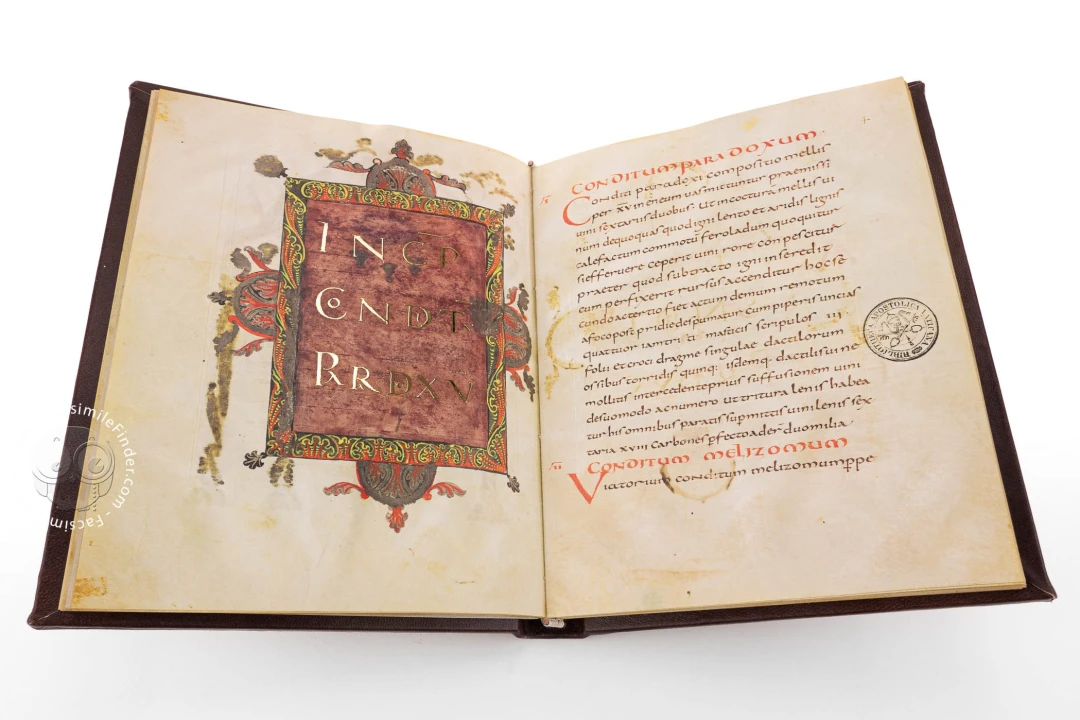 INCP
CONDT
PARDXV
CONDITUM PARADOXUM.
Conditi paradoxi compositio mellis
per xv in eneum vas mittuntur praemissi
vini sextariis duobus. Ut in coctura mellis vi
num dequoquas quod igni lento et aridis lignis
calefactum commotū ferola dum quoquitur
si effervere ceperit vini rore conpescitur
praeter quod subtracto igni in se redit
cum perfixerit rursus accenditur hoc se
cundo ac tertio fiet ac tum demum remotum
a foco post pridie despumatur cum piperis uncias
quattuor iam triti masticis scripulos iii
folii et croci dragme singulae dactilorum
ossibus torridis quinq; isdemq; dactilis vi ne
mollitis intercedente prius suffusione vini
desuo modo ac numero ut tritura lenis habea
tur his omnibus paratis supmittis vini lenis sex
taria xviii carbones pfecto ader duo milia
II CONDITUM MELIZOMUM
Viatorium conditum melizomum ppe
BIBLIOTHECA APOSTOLICA VATICANA
FacsimileFinder.com - Facsim